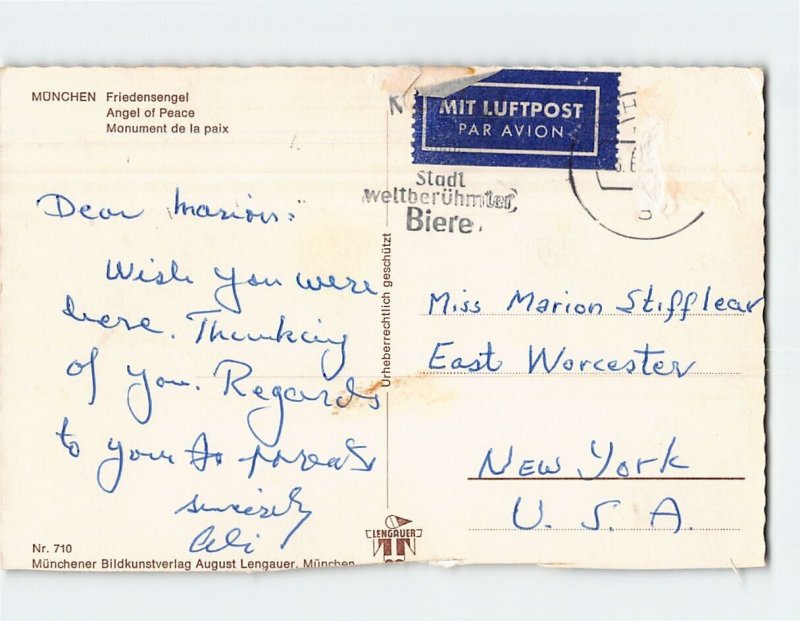 MÜNCHEN Friedensengel
Angel of Peace
Monument de la paix
MIT LUFTPOST
PAR AVION
Stadt
weltberühmter
Biere
Dear Marion:
Wish you were
here. Thinking
of you. Regards
to your parents
sincerely
Ali
Urheberrechtlich geschützt
Miss Marion Stifflear
East Worcester
New York
U. S. A.
LENGAUER
Nr. 710
Münchener Bildkunstverlag August Lengauer, München